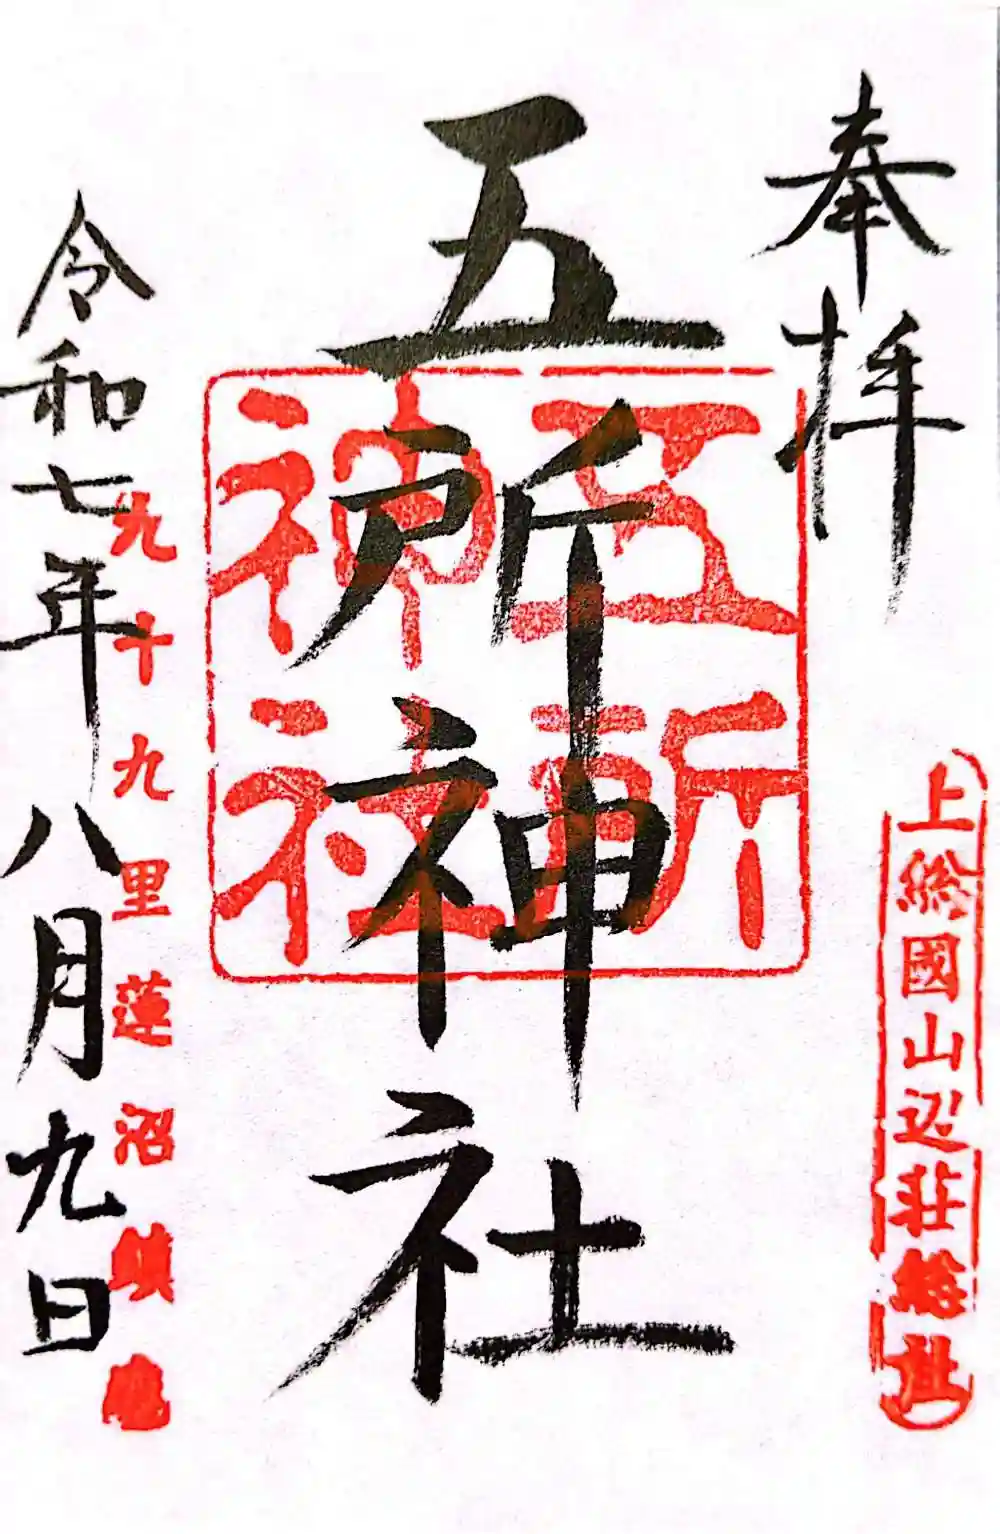 奉拝
上総國山辺荘総社
五所神社
五所
神社
令和七年八月九日
九十九里蓮沼鎮座